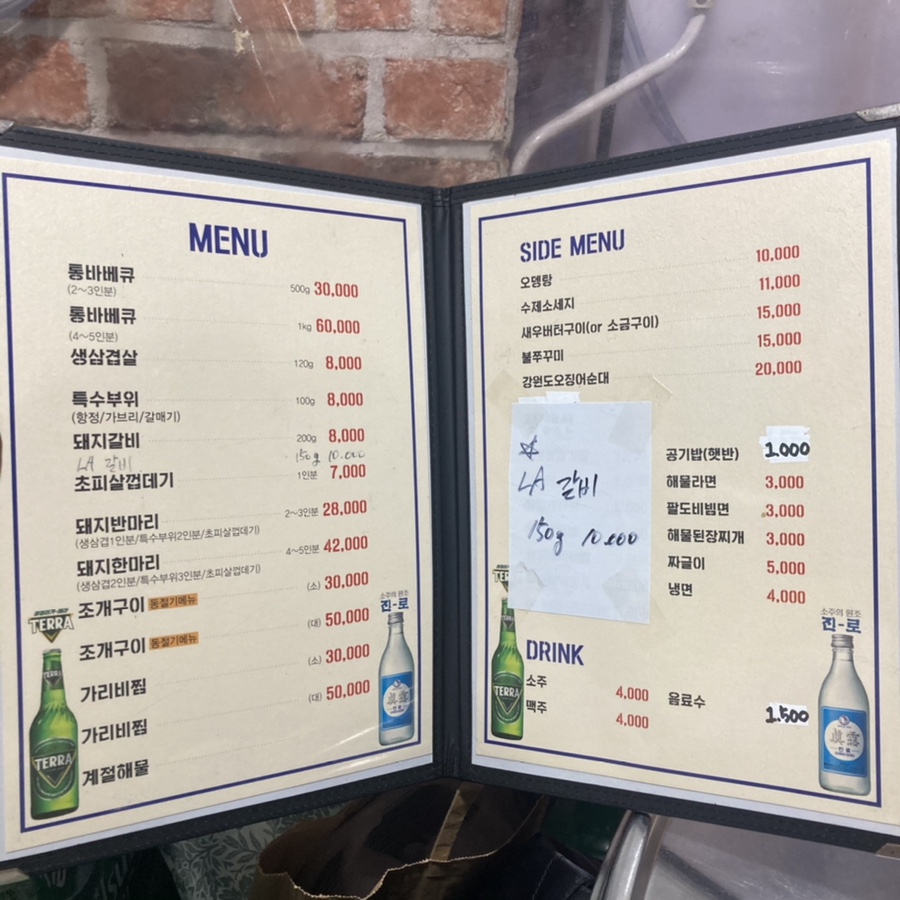 MENU
통바베큐 500g 30,000
(2~3인분)
통바베큐 1kg 60,000
(4~5인분)
생삼겹살 120g 8,000
특수부위 100g 8,000
(항정/가브리/갈매기)
돼지갈비 200g 8,000
LA 갈비 150g 10.000
초피살껍데기 1인분 7,000
돼지반마리 2~3인분 28,000
(생삼겹1인분/특수부위2인분/초피살껍데기)
돼지한마리 4~5인분 42,000
(생삼겹2인분/특수부위3인분/초피살껍데기)
조개구이 동절기메뉴 (소) 30,000
조개구이 동절기메뉴 (대) 50,000
가리비찜 (소) 30,000
가리비찜 (대) 50,000
계절해물
TERRA
TERRA
소주의 원조
진-로
眞露
진로
SIDE MENU
오뎅탕 10,000
수제소세지 11,000
새우버터구이(or 소금구이) 15,000
불쭈꾸미 15,000
강원도오징어순대 20,000
☆
LA 갈비
150g 10.000
공기밥(햇반) 1.000
해물라면 3,000
팔도비빔면 3,000
해물된장찌개 3,000
짜글이 5,000
냉면 4,000
DRINK
소주 4,000
맥주 4,000
음료수 1.500
TERRA
TERRA
소주의 원조
진-로
眞露
진로